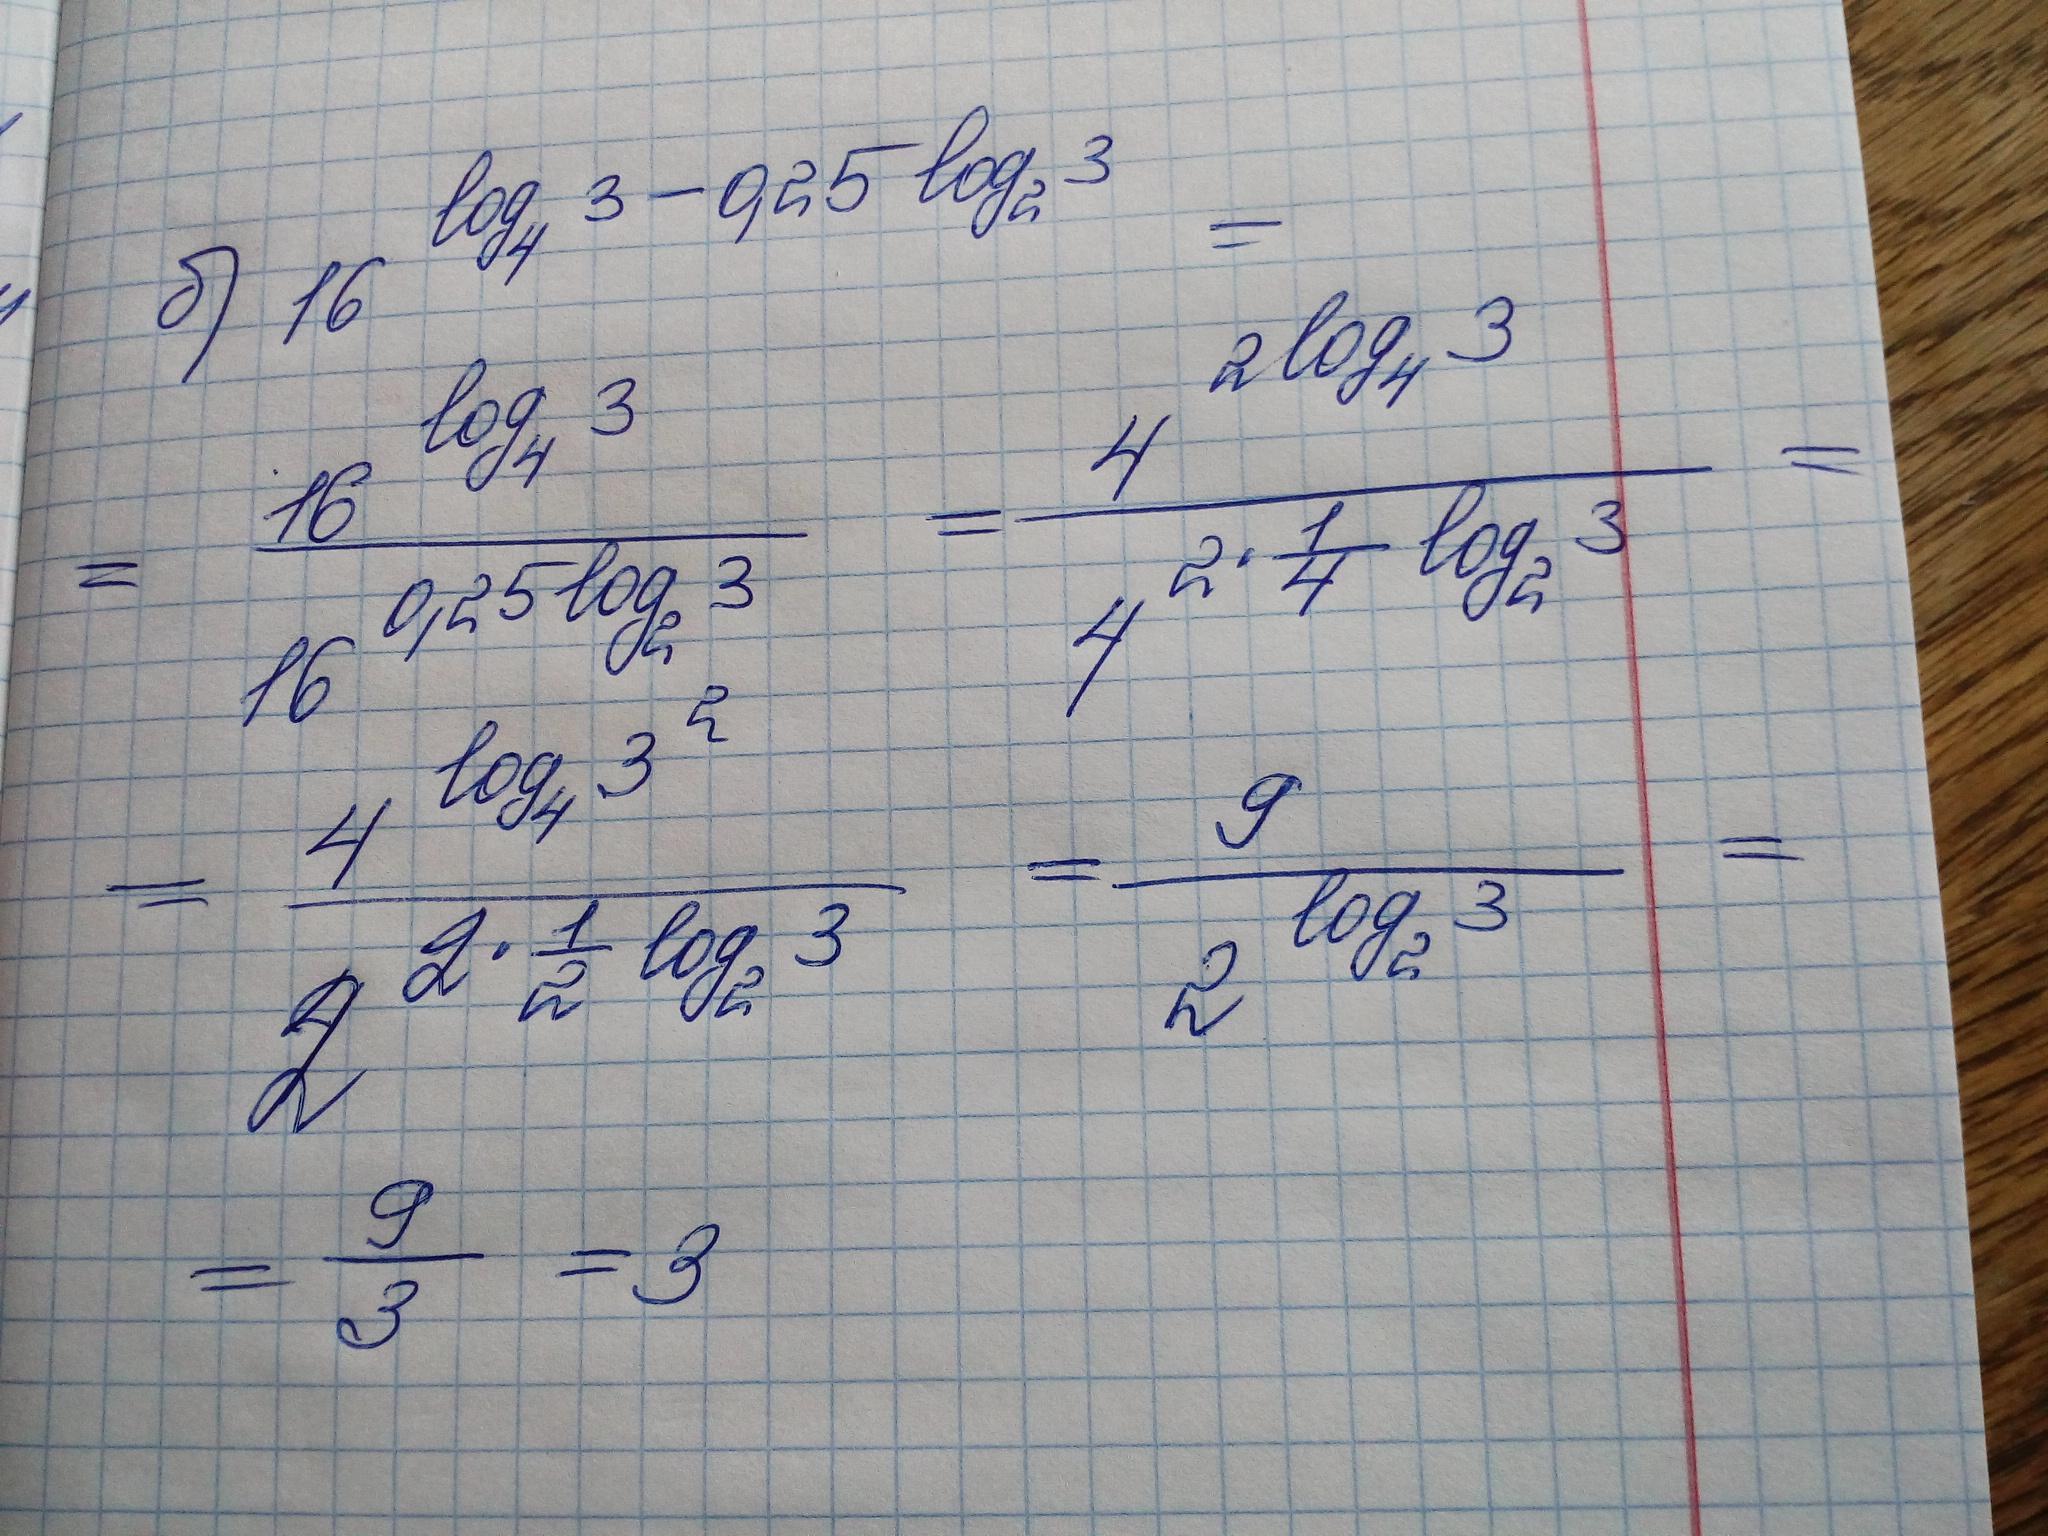 б) 16^(log₄ 3 − 0,25 log₂ 3) =
= 16^(log₄ 3) / 16^(0,25 log₂ 3) = 4^(2 log₄ 3) / 4^(2 · 1/4 log₂ 3) =
= 4^(log₄ 3²) / 2^(2 · 1/2 log₂ 3) = 9 / 2^(log₂ 3) =
= 9/3 = 3